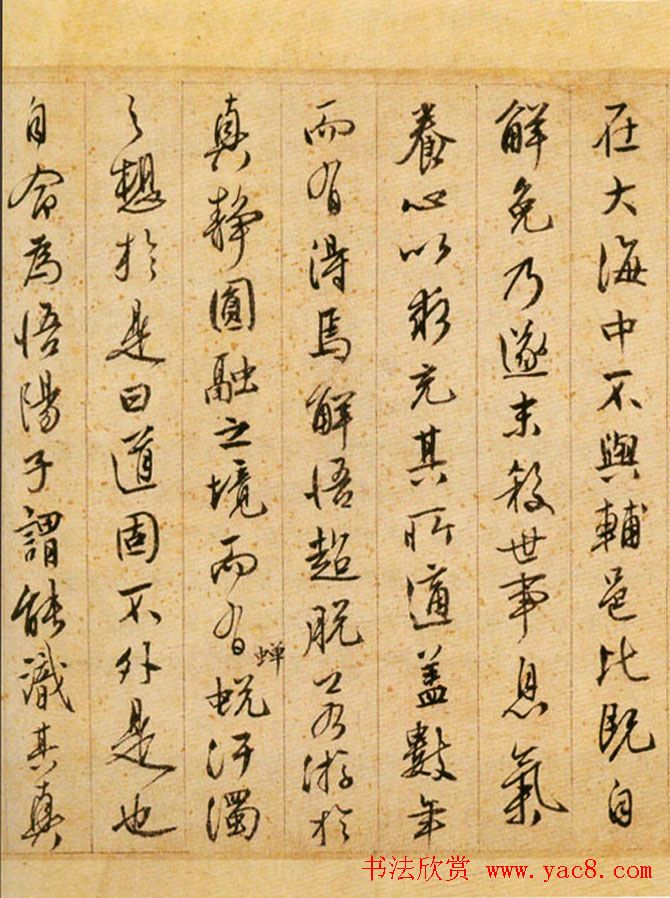 在大海中不與輔邑比既自
解免乃遂末殺世事息氣
養心以求充其所適蓋數年
而有得焉解悟超脱若游於
真靜圓融之境而有蟬蜕汙濁
之想於是曰道固不外是也
自命為悟陽子謂能識其真
书法欣赏 www.yac8.com